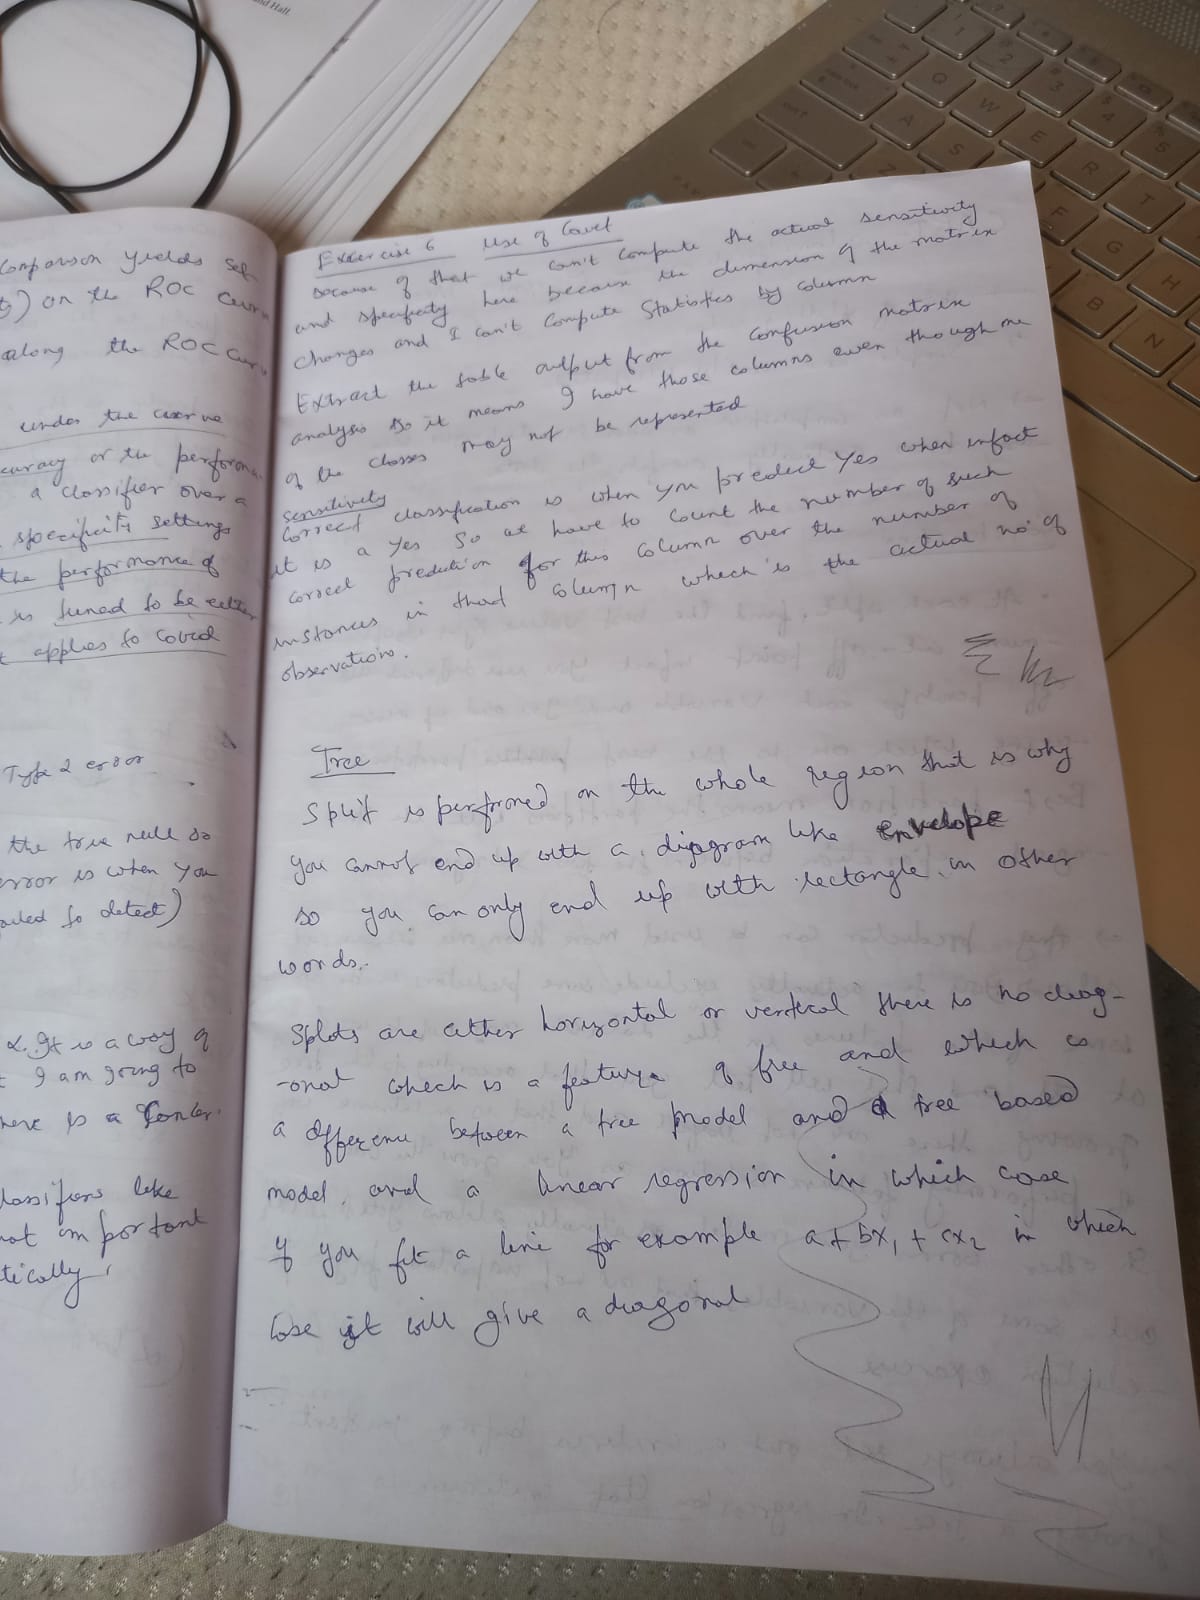 and Hall
Comparison yields set
) on the ROC curv
along the ROC cur
under the curve
curacy or the performa
a classifier over a
specificity settings
the performance of
is tuned to be either
t applies to Covid
Type 2 error
the true null so
error is when you
ailed to detect)
It is a way of
I am going to
here is a
lassifiers like
not important
tically,
Exercise 6 Use of Caret
because of that we can't compute the actual sensitivity
and specificity here because the dimension of the matrix
changes and I can't compute statistics by column
Extract the table output from the confusion matrix
analysis so it means I have those columns even though one
of the classes may not be represented
Sensitivity
Correct classification is when you predict Yes when infact
it is a Yes so we have to count the number of such
correct prediction for this column over the number of
instances in that column which is the actual no. of
observations.
Tree
Split is performed on the whole region that is why
you cannot end up with a diagram like envelope
so you can only end up with rectangle in other
words.
Splits are either horizontal or vertical there is no diag-
-onal which is a feature of tree and which is
a difference between a tree model and a tree based
model and a linear regression in which case
if you fit a line for example a + bx1 + cx2 in which
case it will give a diagonal